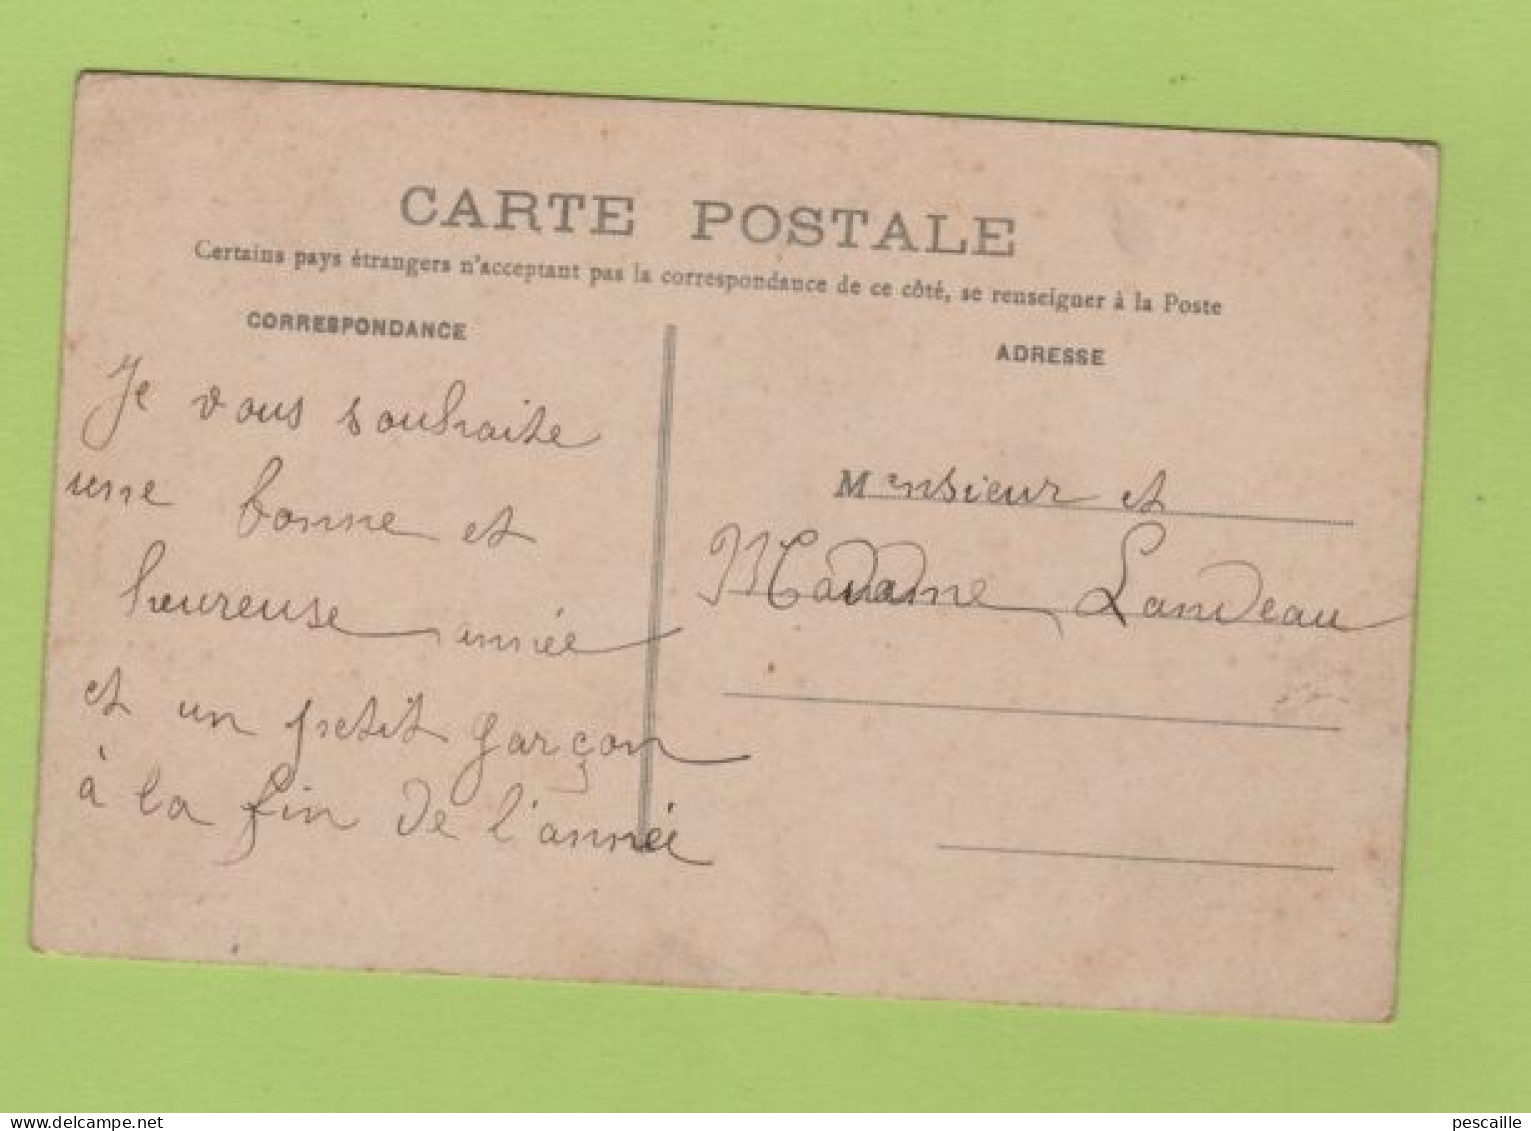 CARTE POSTALE
Certains pays étrangers n'acceptant pas la correspondance de ce côté, se renseigner à la Poste
CORRESPONDANCE
Je vous souhaite
une bonne et
heureuse année
et un petit garçon
à la fin de l'année
ADRESSE
Monsieur et
Madame Landeau
pescaille